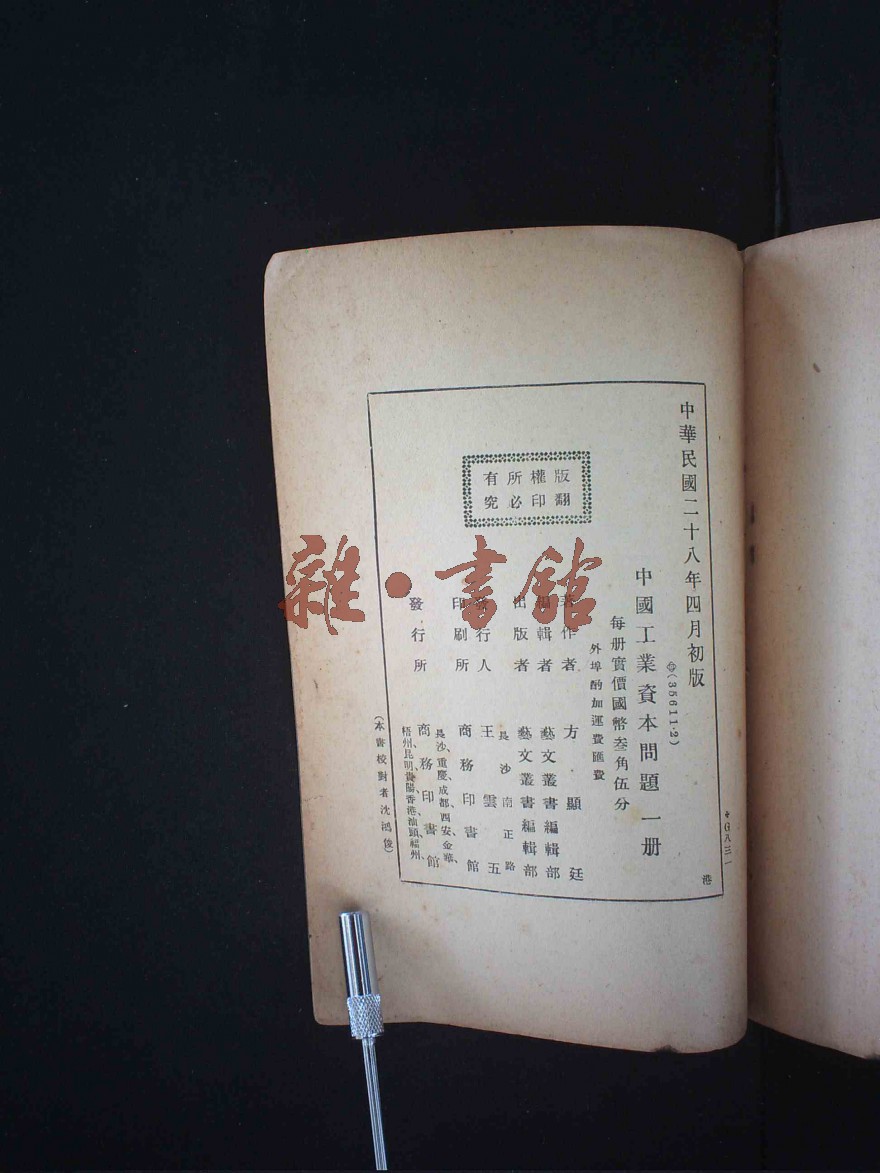 中華民國二十八年四月初版
(35611·2)
中國工業資本問題 一册
每册實價國幣叁角伍分
外埠酌加運費匯費
版權所有
翻印必究
著作者 方顯廷
編輯者 藝文叢書編輯部
出版者 藝文叢書編輯部
長沙南正路
發行人 王雲五
印刷所 商務印書館
發行所 商務印書館
長沙、重慶、成都、西安、金華、
梧州、昆明、貴陽、香港、汕頭、福州、
(本書校對者沈鴻俊)
港
雜·書館